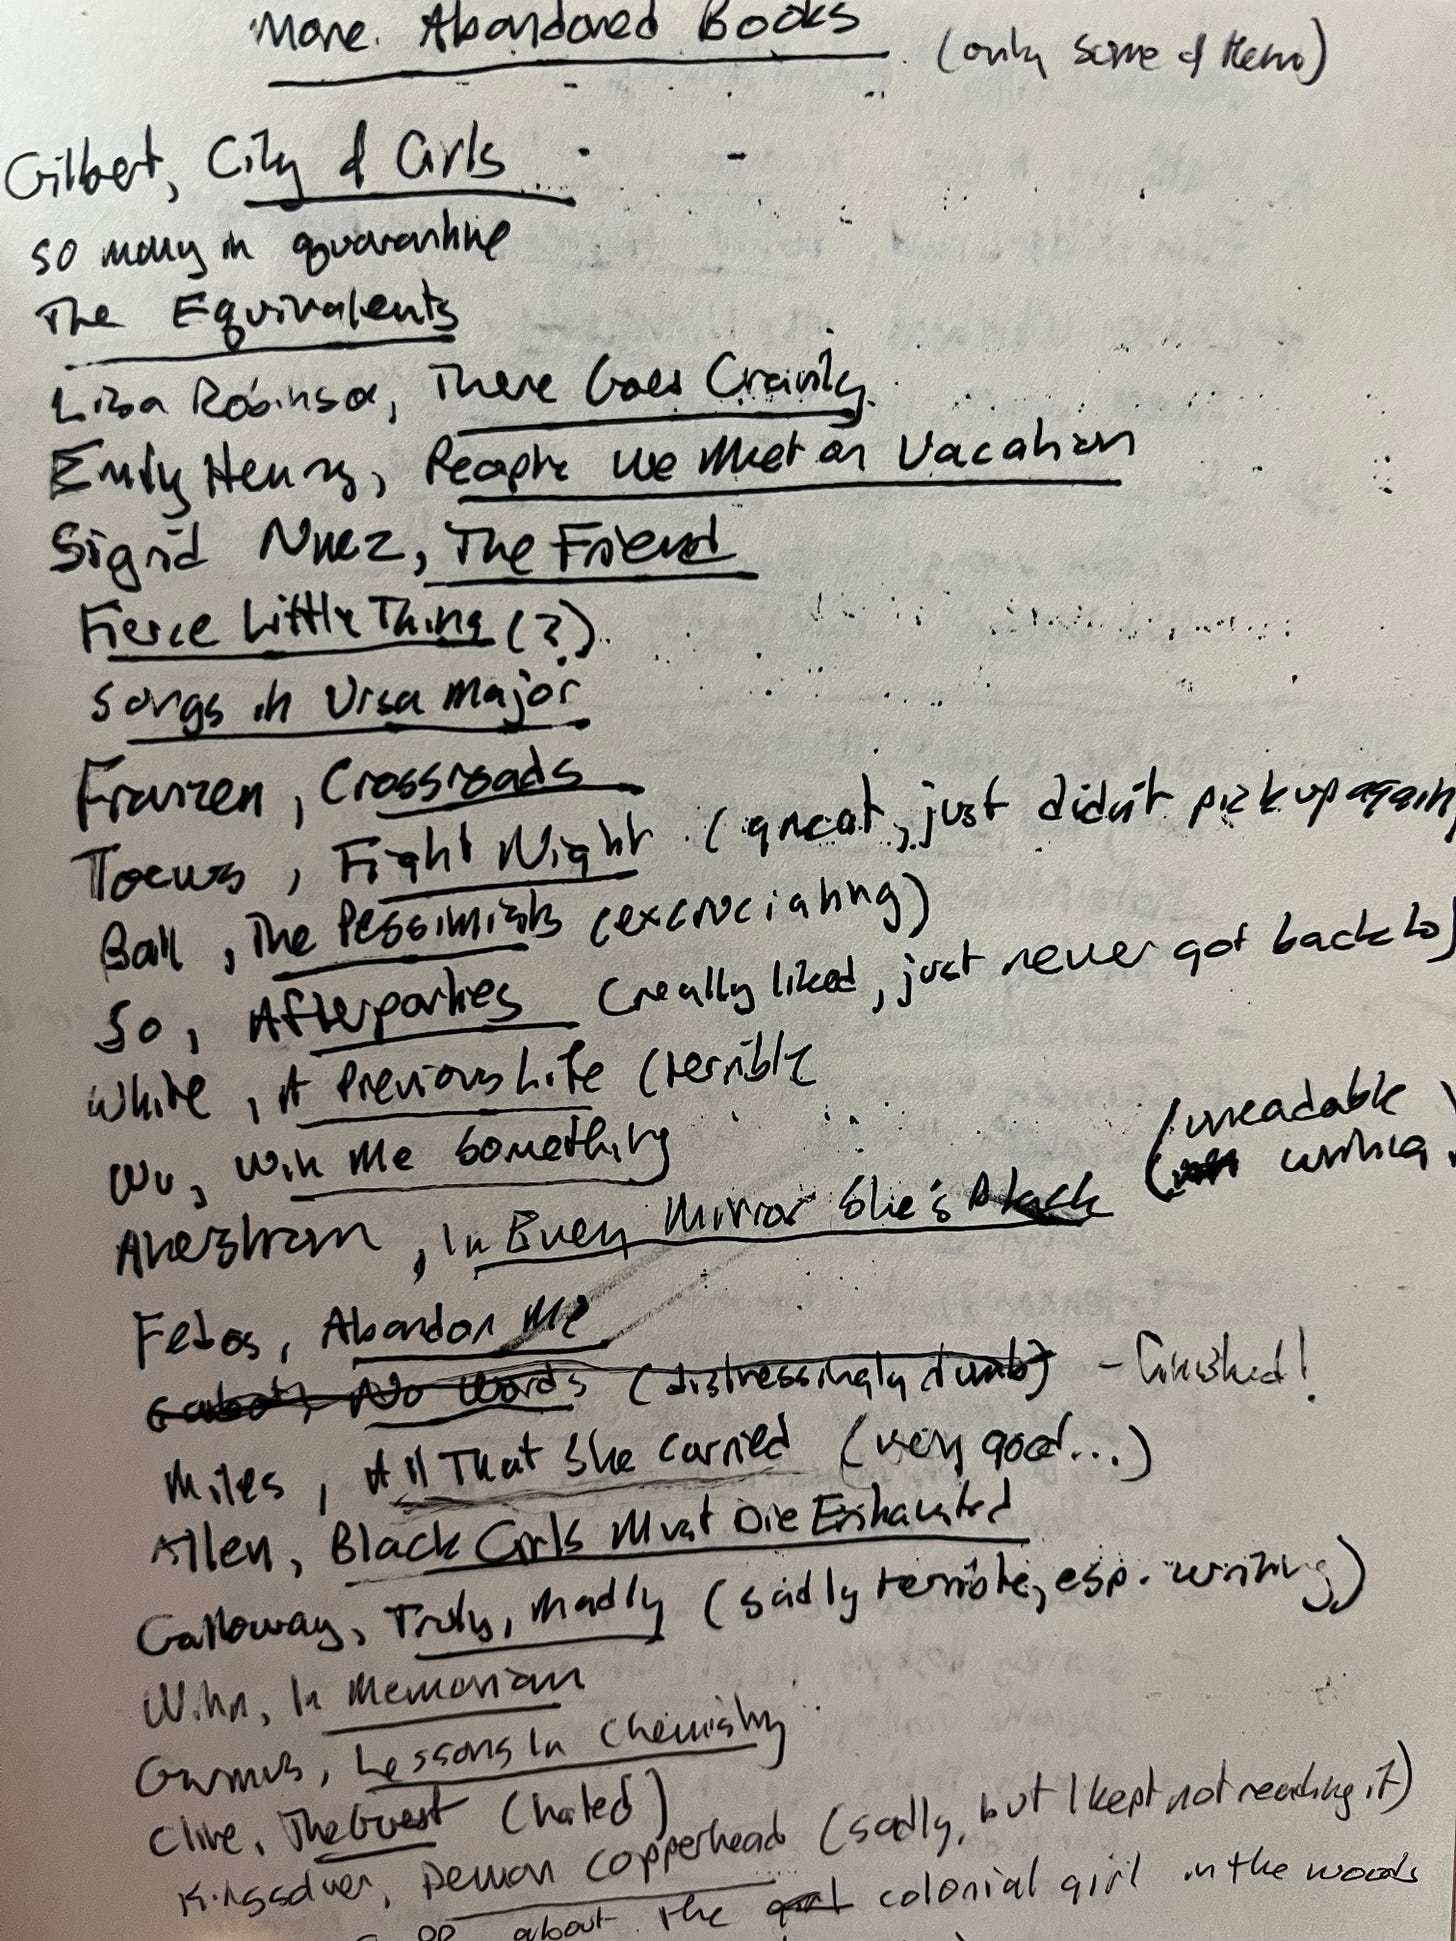 More Abandoned Books (only some of them)
Gilbert, City of Girls
so many in quarantine
The Equivalents
Lisa Robinson, There Goes Gravity
Emily Henry, People We Meet on Vacation
Sigrid Nunez, The Friend
Fierce Little Thing (?)
Songs in Ursa Major
Franzen, Crossroads
Toews, Fight Night (great, just didn't pick up again
Ball, The Pessimists (excruciating)
So, Afterparties (really liked, just never got back to)
White, A Previous Life (terrible
Wu, Win Me Something
Akerstrom, In Every Mirror She's Black (unreadable writing)
Febos, Abandon Me
Cabot, No Words (distressingly dumb) - finished!
Miles, All That She Carried (very good...)
Allen, Black Girls Must Die Exhausted
Galloway, Truly, Madly (sadly terrible, esp. writing)
Winn, In Memoriam
Garmus, Lessons In Chemistry
Cline, The Guest (hated)
Kingsolver, Demon Copperhead (sadly, but I kept not reading it)
about the colonial girl in the woods